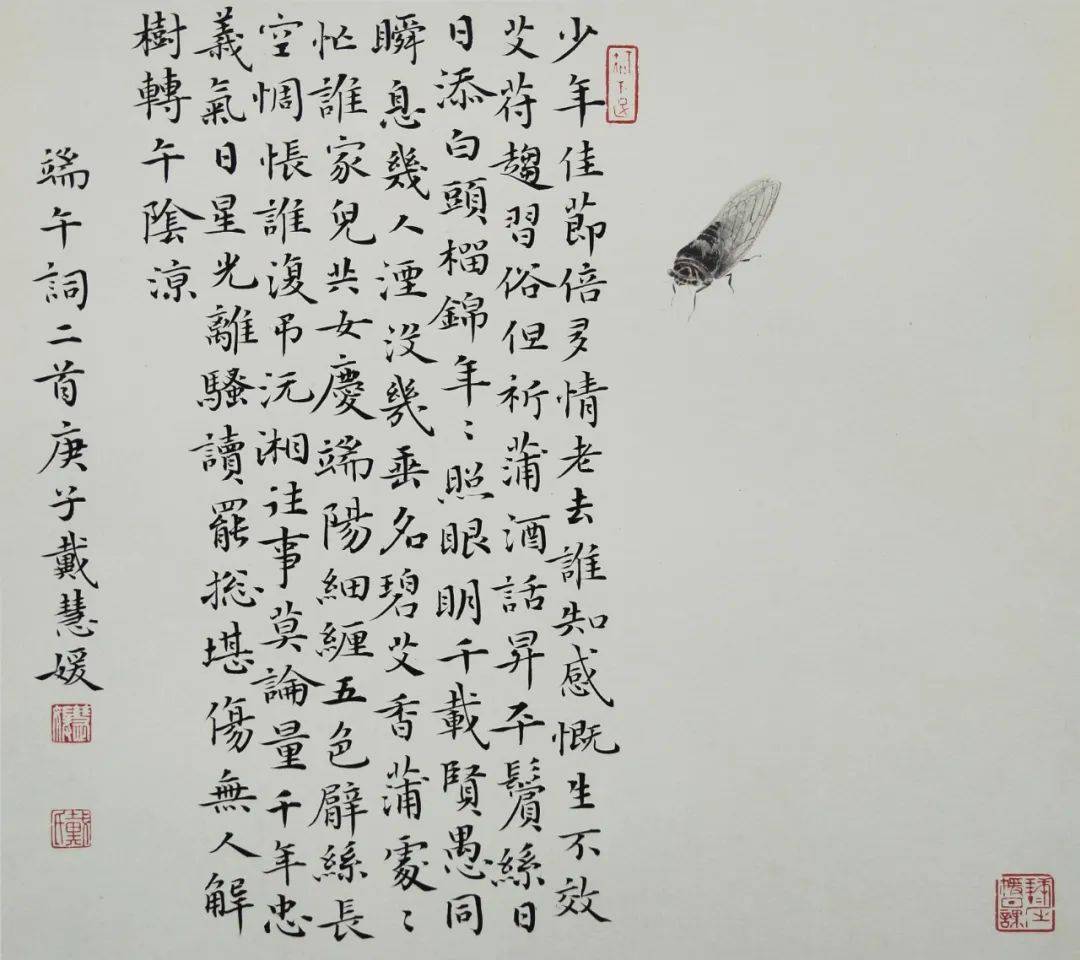 少年佳節倍多情老去誰知感慨生不效
艾苻趨習俗但祈蒲酒話昇平鬢絲日
日添白頭榴錦年〻照眼明千載賢愚同
瞬息幾人湮没幾垂名碧艾香蒲處〻
忙誰家兒共女慶端陽細纏五色臂絲長
空惆悵誰復吊沅湘往事莫論量千年忠
義氣日星光離騷讀罷捴堪傷無人解
樹轉午陰涼
端午詞二首庚子戴慧媛
慧媛
戴氏